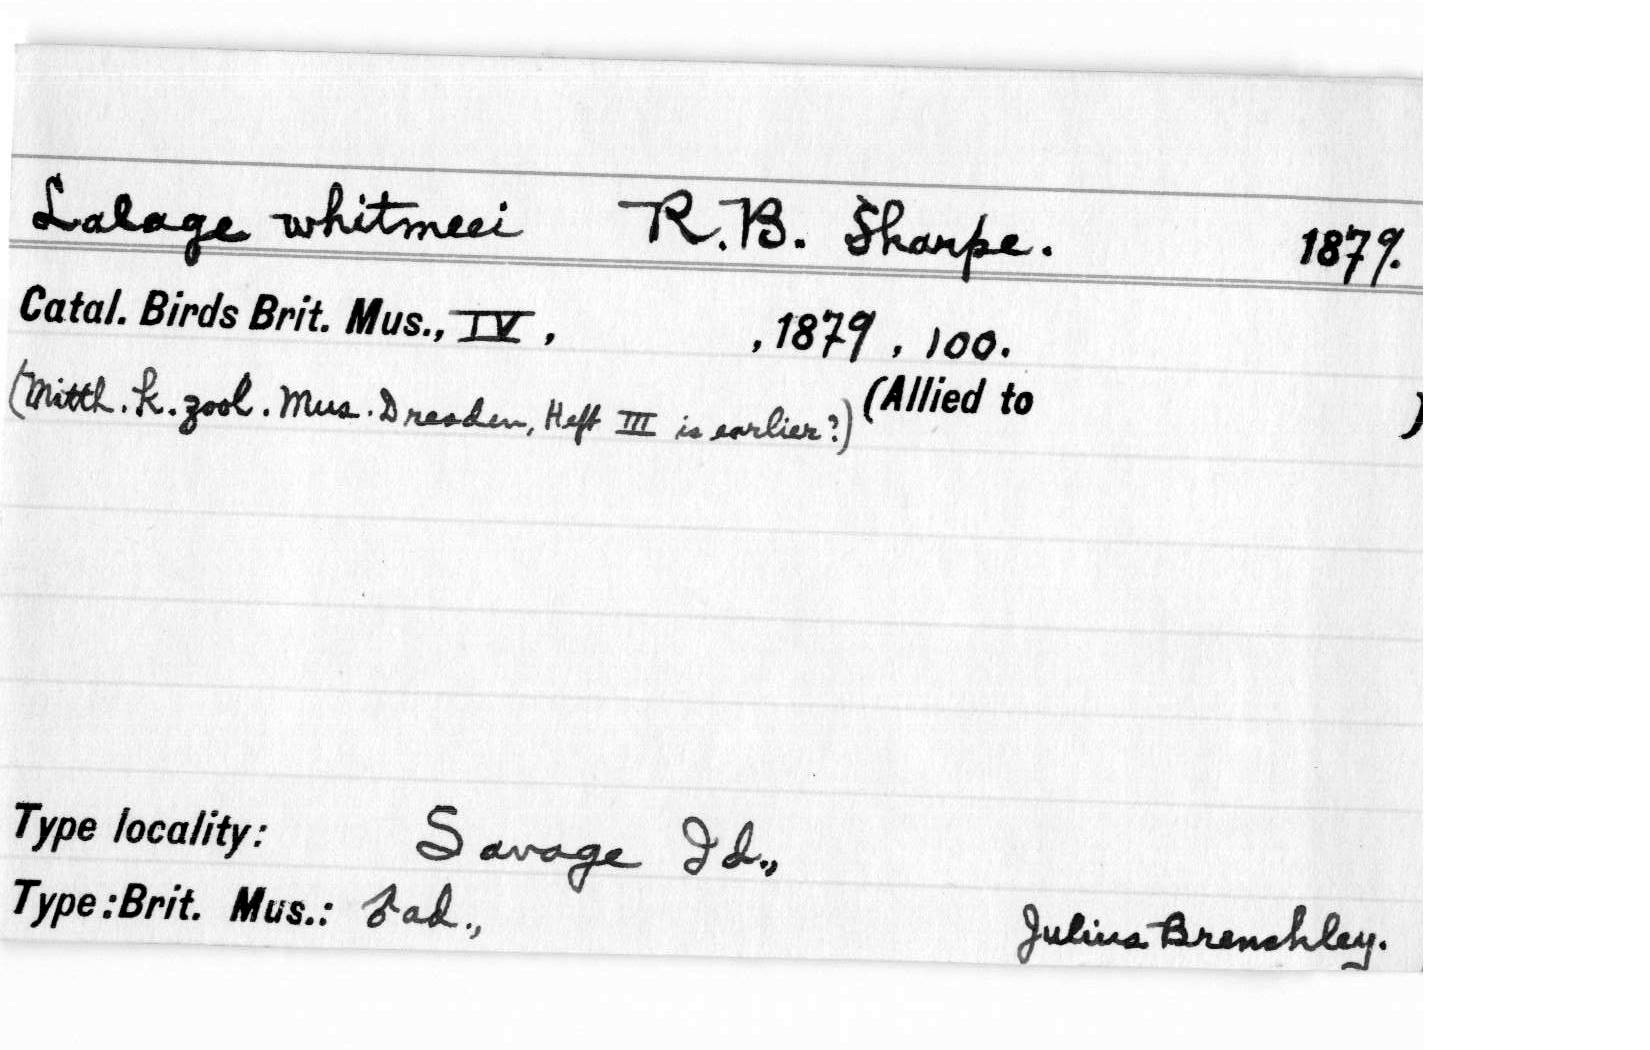 Lalage whitmeei R.B. Sharpe. 1879.
Catal. Birds Brit. Mus., IV, , 1879, 100.
(Mitth. k. zool. Mus. Dresden, Heft III is earlier?) (Allied to )
Type locality: Savage Id.,
Type: Brit. Mus.: ad., Julius Brenchley.